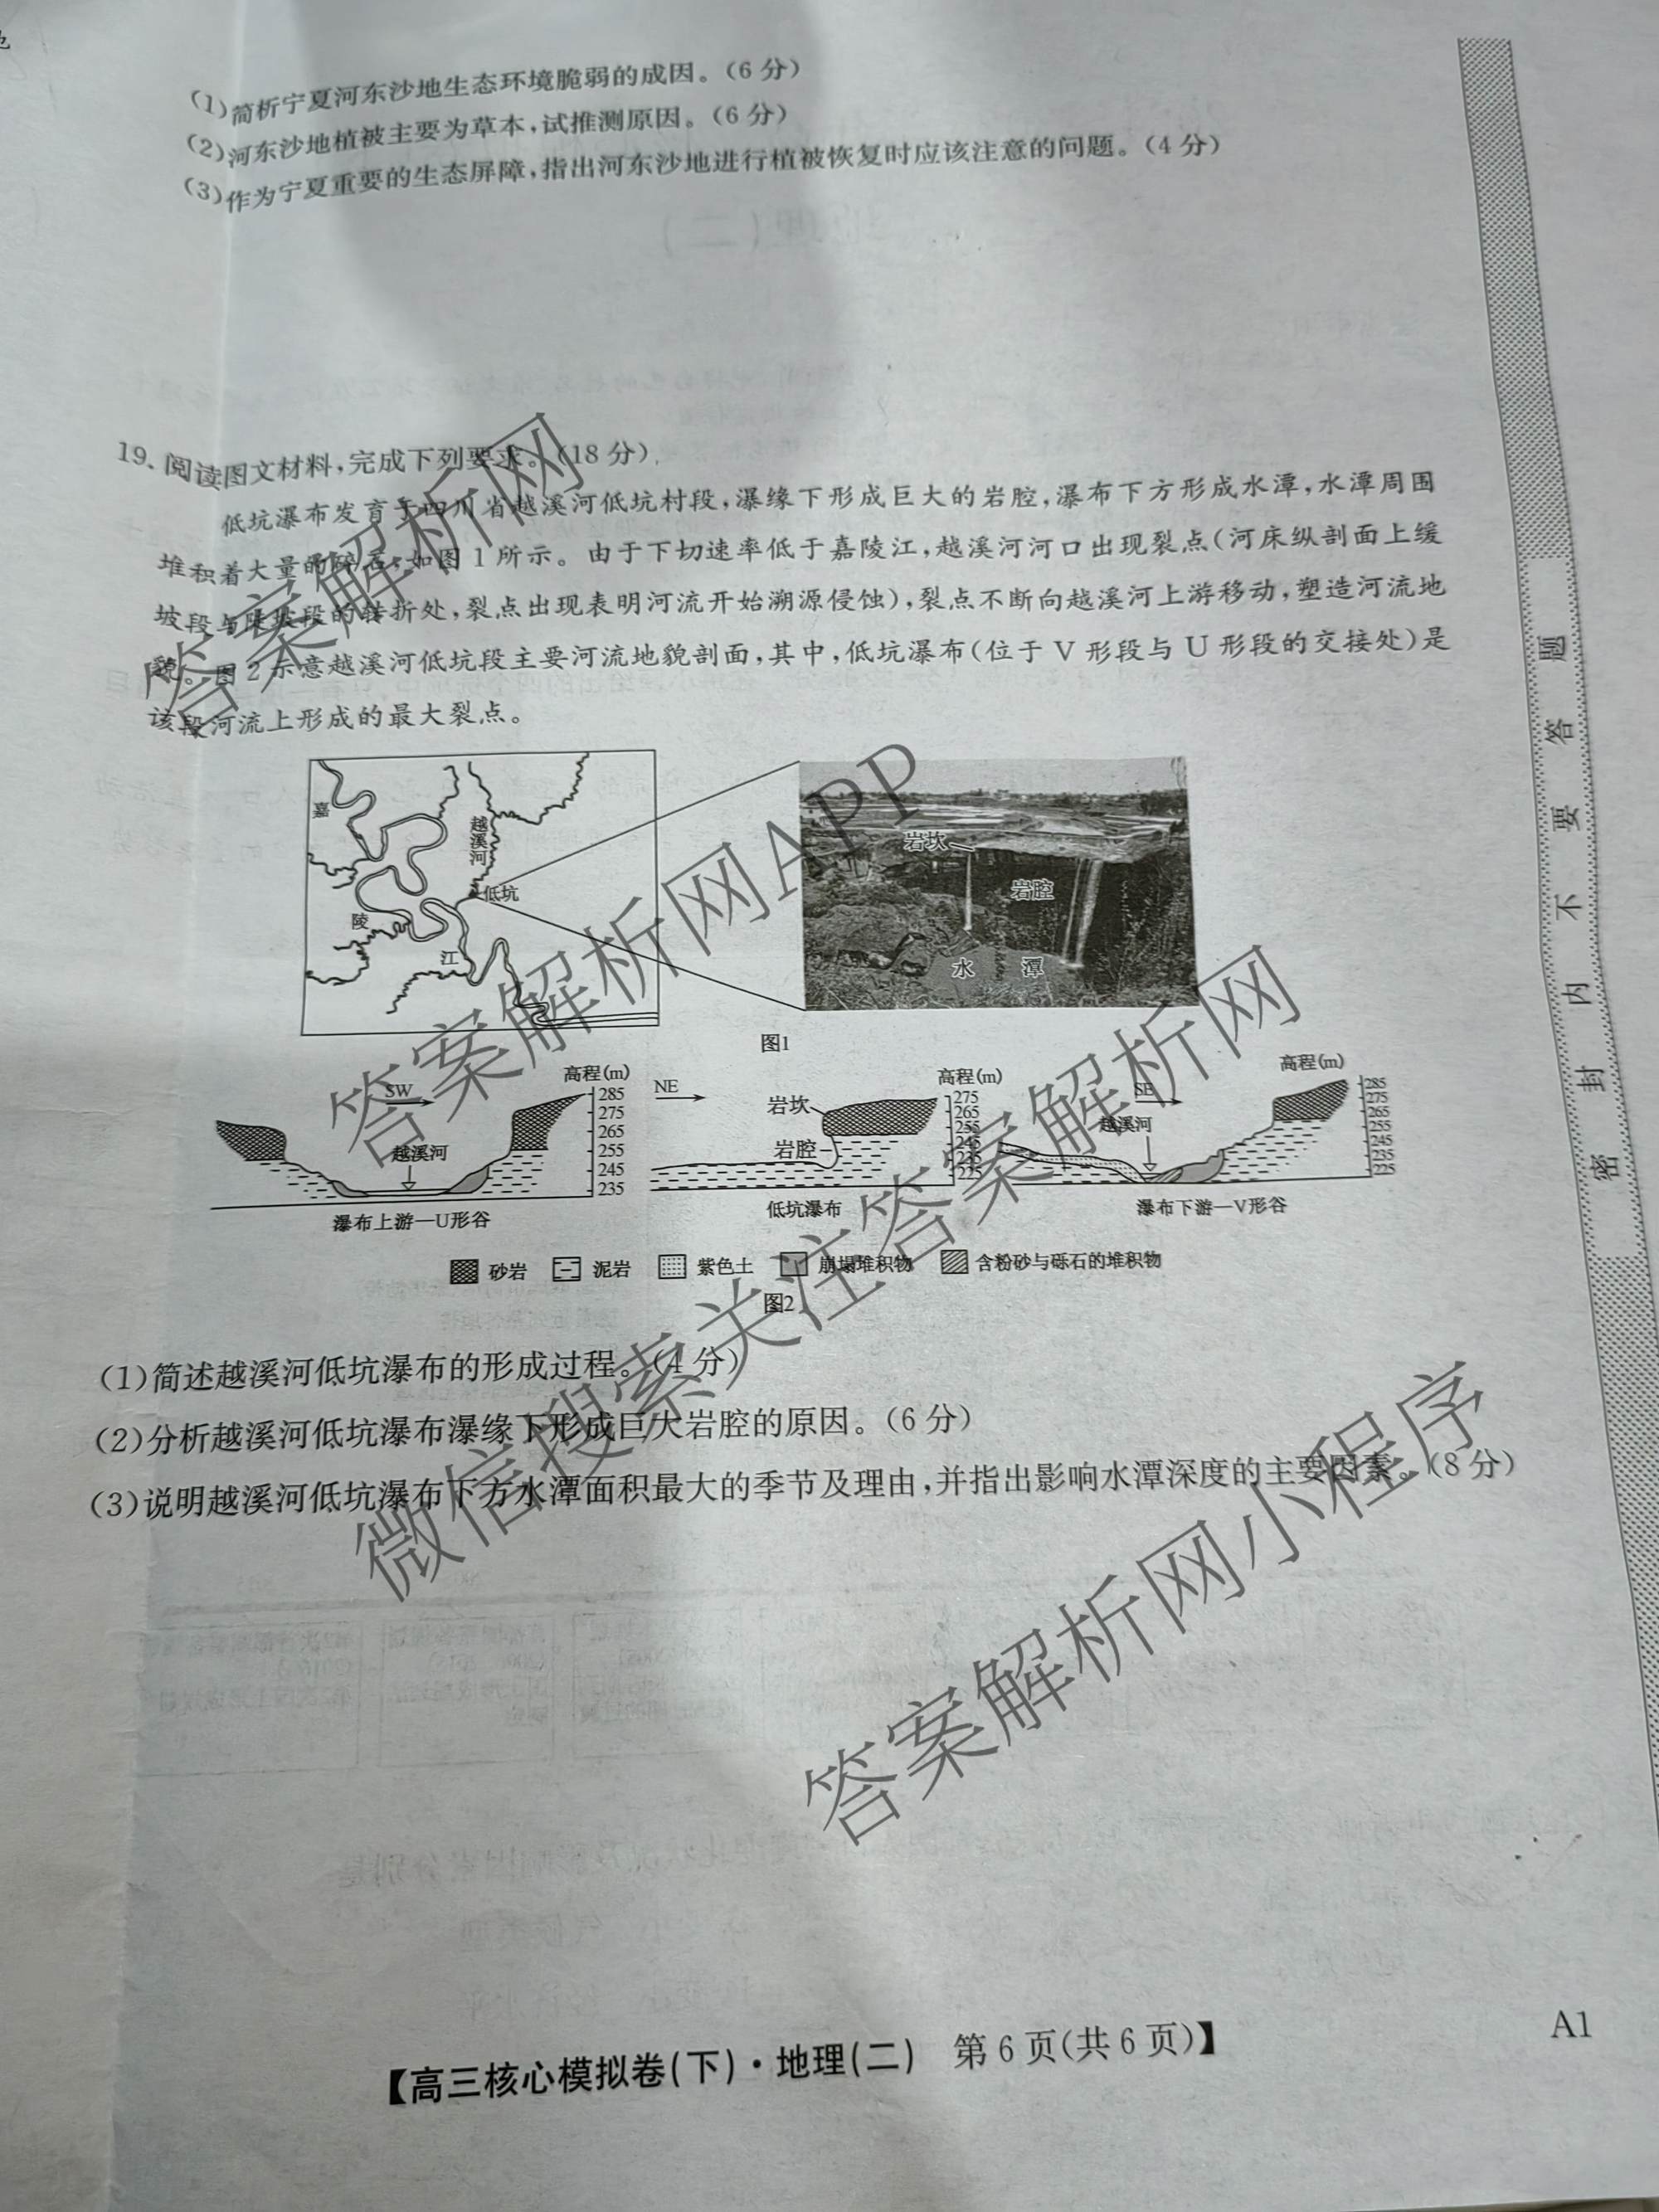 (1)简析宁夏河东沙地生态环境脆弱的成因。(6分)
(2)河东沙地植被主要为草本,试推测原因。(6分)
(3)作为宁夏重要的生态屏障,指出河东沙地进行植被恢复时应该注意的问题。(4分)
19、阅读图文材料,完成下列要求。(18分)
低坑瀑布发育于四川省越溪河低坑村段,瀑缘下形成巨大的岩腔,瀑布下方形成水潭,水潭周围
堆积着大量的碎石,如图1所示。由于下切速率低于嘉陵江,越溪河河口出现裂点(河床纵剖面上缓
坡段与陡坡段的转折处,裂点出现表明河流开始溯源侵蚀),裂点不断向越溪河上游移动,塑造河流地
貌。图2示意越溪河低坑段主要河流地貌剖面,其中,低坑瀑布(位于V形段与U形段的交接处)是
该段河流上形成的最大裂点。
嘉
陵
江
越溪河
低坑
岩坎
岩腔
水 潭
图1
SW
高程(m)
285
275
265
255
245
235
越溪河
瀑布上游—U形谷
NE
高程(m)
275
265
255
245
235
225
岩坎
岩腔
低坑瀑布
SE
高程(m)
285
275
265
255
245
235
225
越溪河
瀑布下游—V形谷
砂岩 泥岩 紫色土 崩塌堆积物 含粉砂与砾石的堆积物
图2
(1)简述越溪河低坑瀑布的形成过程。(4分)
(2)分析越溪河低坑瀑布瀑缘下形成巨大岩腔的原因。(6分)
(3)说明越溪河低坑瀑布下方水潭面积最大的季节及理由,并指出影响水潭深度的主要因素。(8分)
【高三核心模拟卷(下)·地理(二) 第6页(共6页)】
A1
密封内不要答题
答案解析网
答案解析网APP
微信搜索关注答案解析网
答案解析网小程序